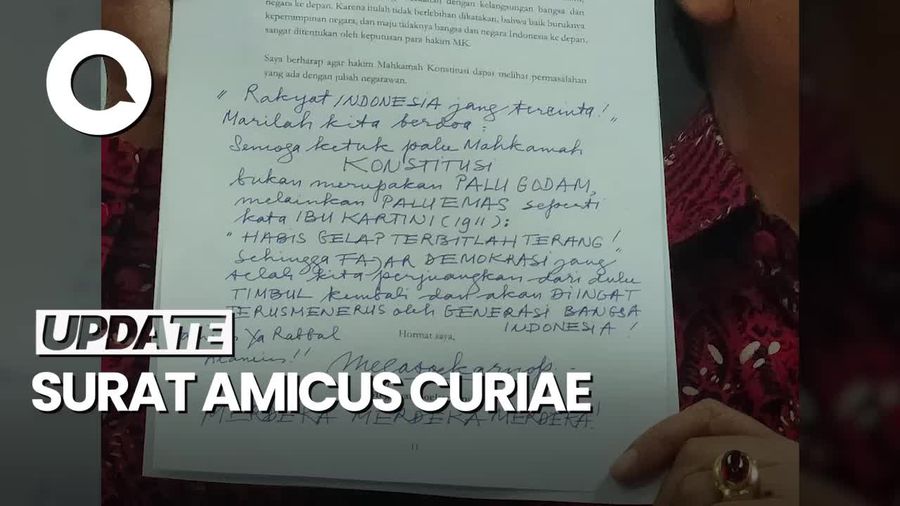 dengan kelangsungan bangsa dan
negara ke depan. Karena itulah tidak berlebihan dikatakan, bahwa baik buruknya
kepemimpinan negara, dan maju tidaknya bangsa dan negara Indonesia ke depan,
sangat ditentukan oleh keputusan para hakim MK.
Saya berharap agar hakim Mahkamah Konstitusi dapat melihat permasalahan
yang ada dengan jubah negarawan.
" Rakyat INDONESIA jang tercinta! "
Marilah kita berdoa :
Semoga ketuk palu Mahkamah
KONSTITUSI
bukan merupakan PALU GODAM,
melainkan PALU EMAS seperti
kata IBU KARTINI (1911) :
" HABIS GELAP TERBITLAH TERANG !
Sehingga FAJAR DEMOKRASI jang
telah kita perjuangkan dari dulu
TIMBUL kembali dan akan DIINGAT
TERUSMENERUS oleh GENERASI BANGSA
INDONESIA !
Ya Rabbal
Hormat saya,
UPDATE
SURAT AMICUS CURIAE
MERDEKA MERDEKA MERDEKA !
11